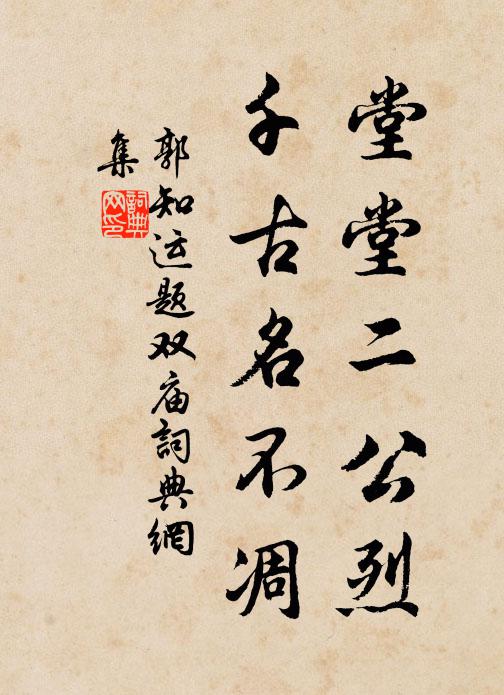 堂堂二公烈
千古名不凋
郭知运题双庙詞典網
集
詞典网印